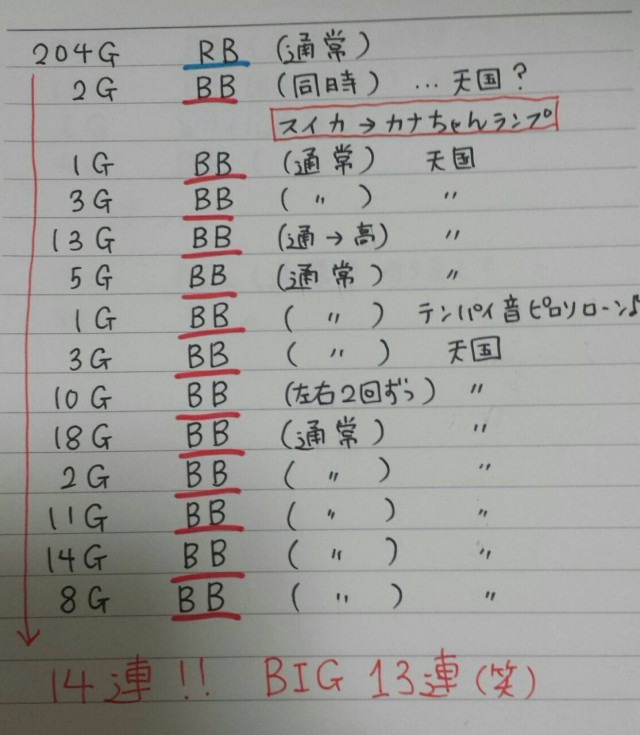 204G RB (通常)
2G BB (同時) …天国?
スイカ→カナちゃんランプ
1G BB (通常) 天国
3G BB ( 〃 ) 〃
13G BB (通→高) 〃
5G BB (通常) 〃
1G BB ( 〃 ) テンパイ音ピロリローン♪
3G BB ( 〃 ) 天国
10G BB (左右2回ずつ) 〃
18G BB (通常) 〃
2G BB ( 〃 ) 〃
11G BB ( 〃 ) 〃
14G BB ( 〃 ) 〃
8G BB ( 〃 ) 〃
14連!! BIG 13連(笑)